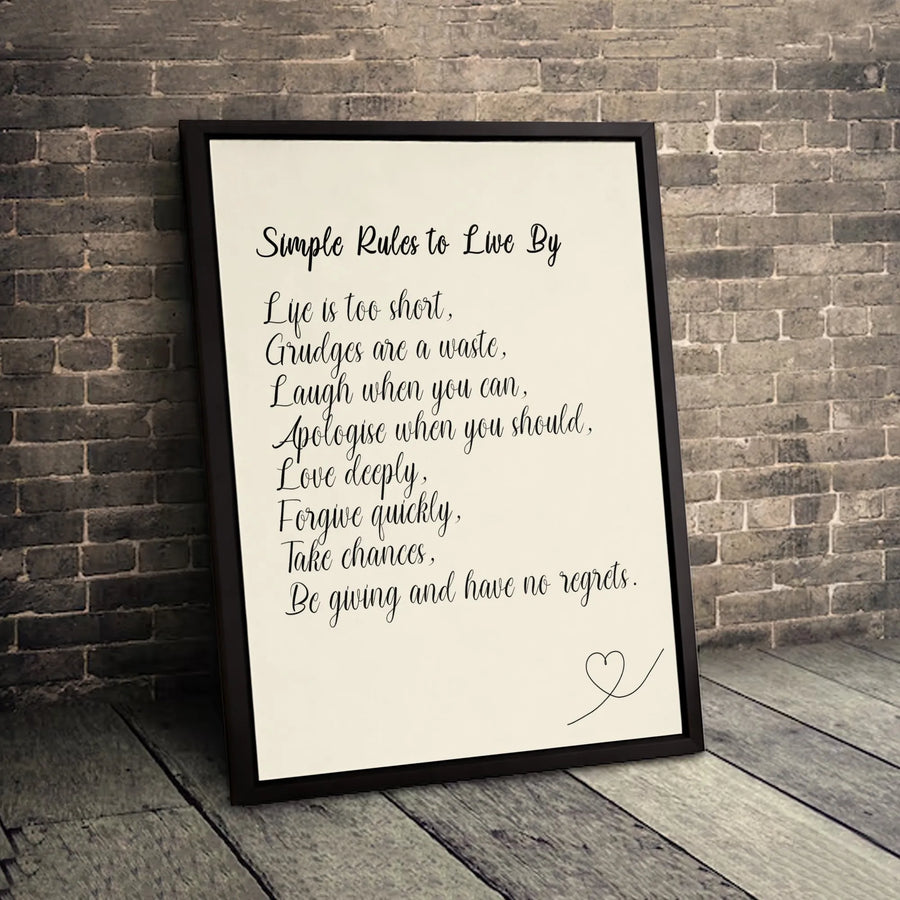 Simple Rules to Live By
Life is too short,
Grudges are a waste,
Laugh when you can,
Apologise when you should,
Love deeply,
Forgive quickly,
Take chances,
Be giving and have no regrets.